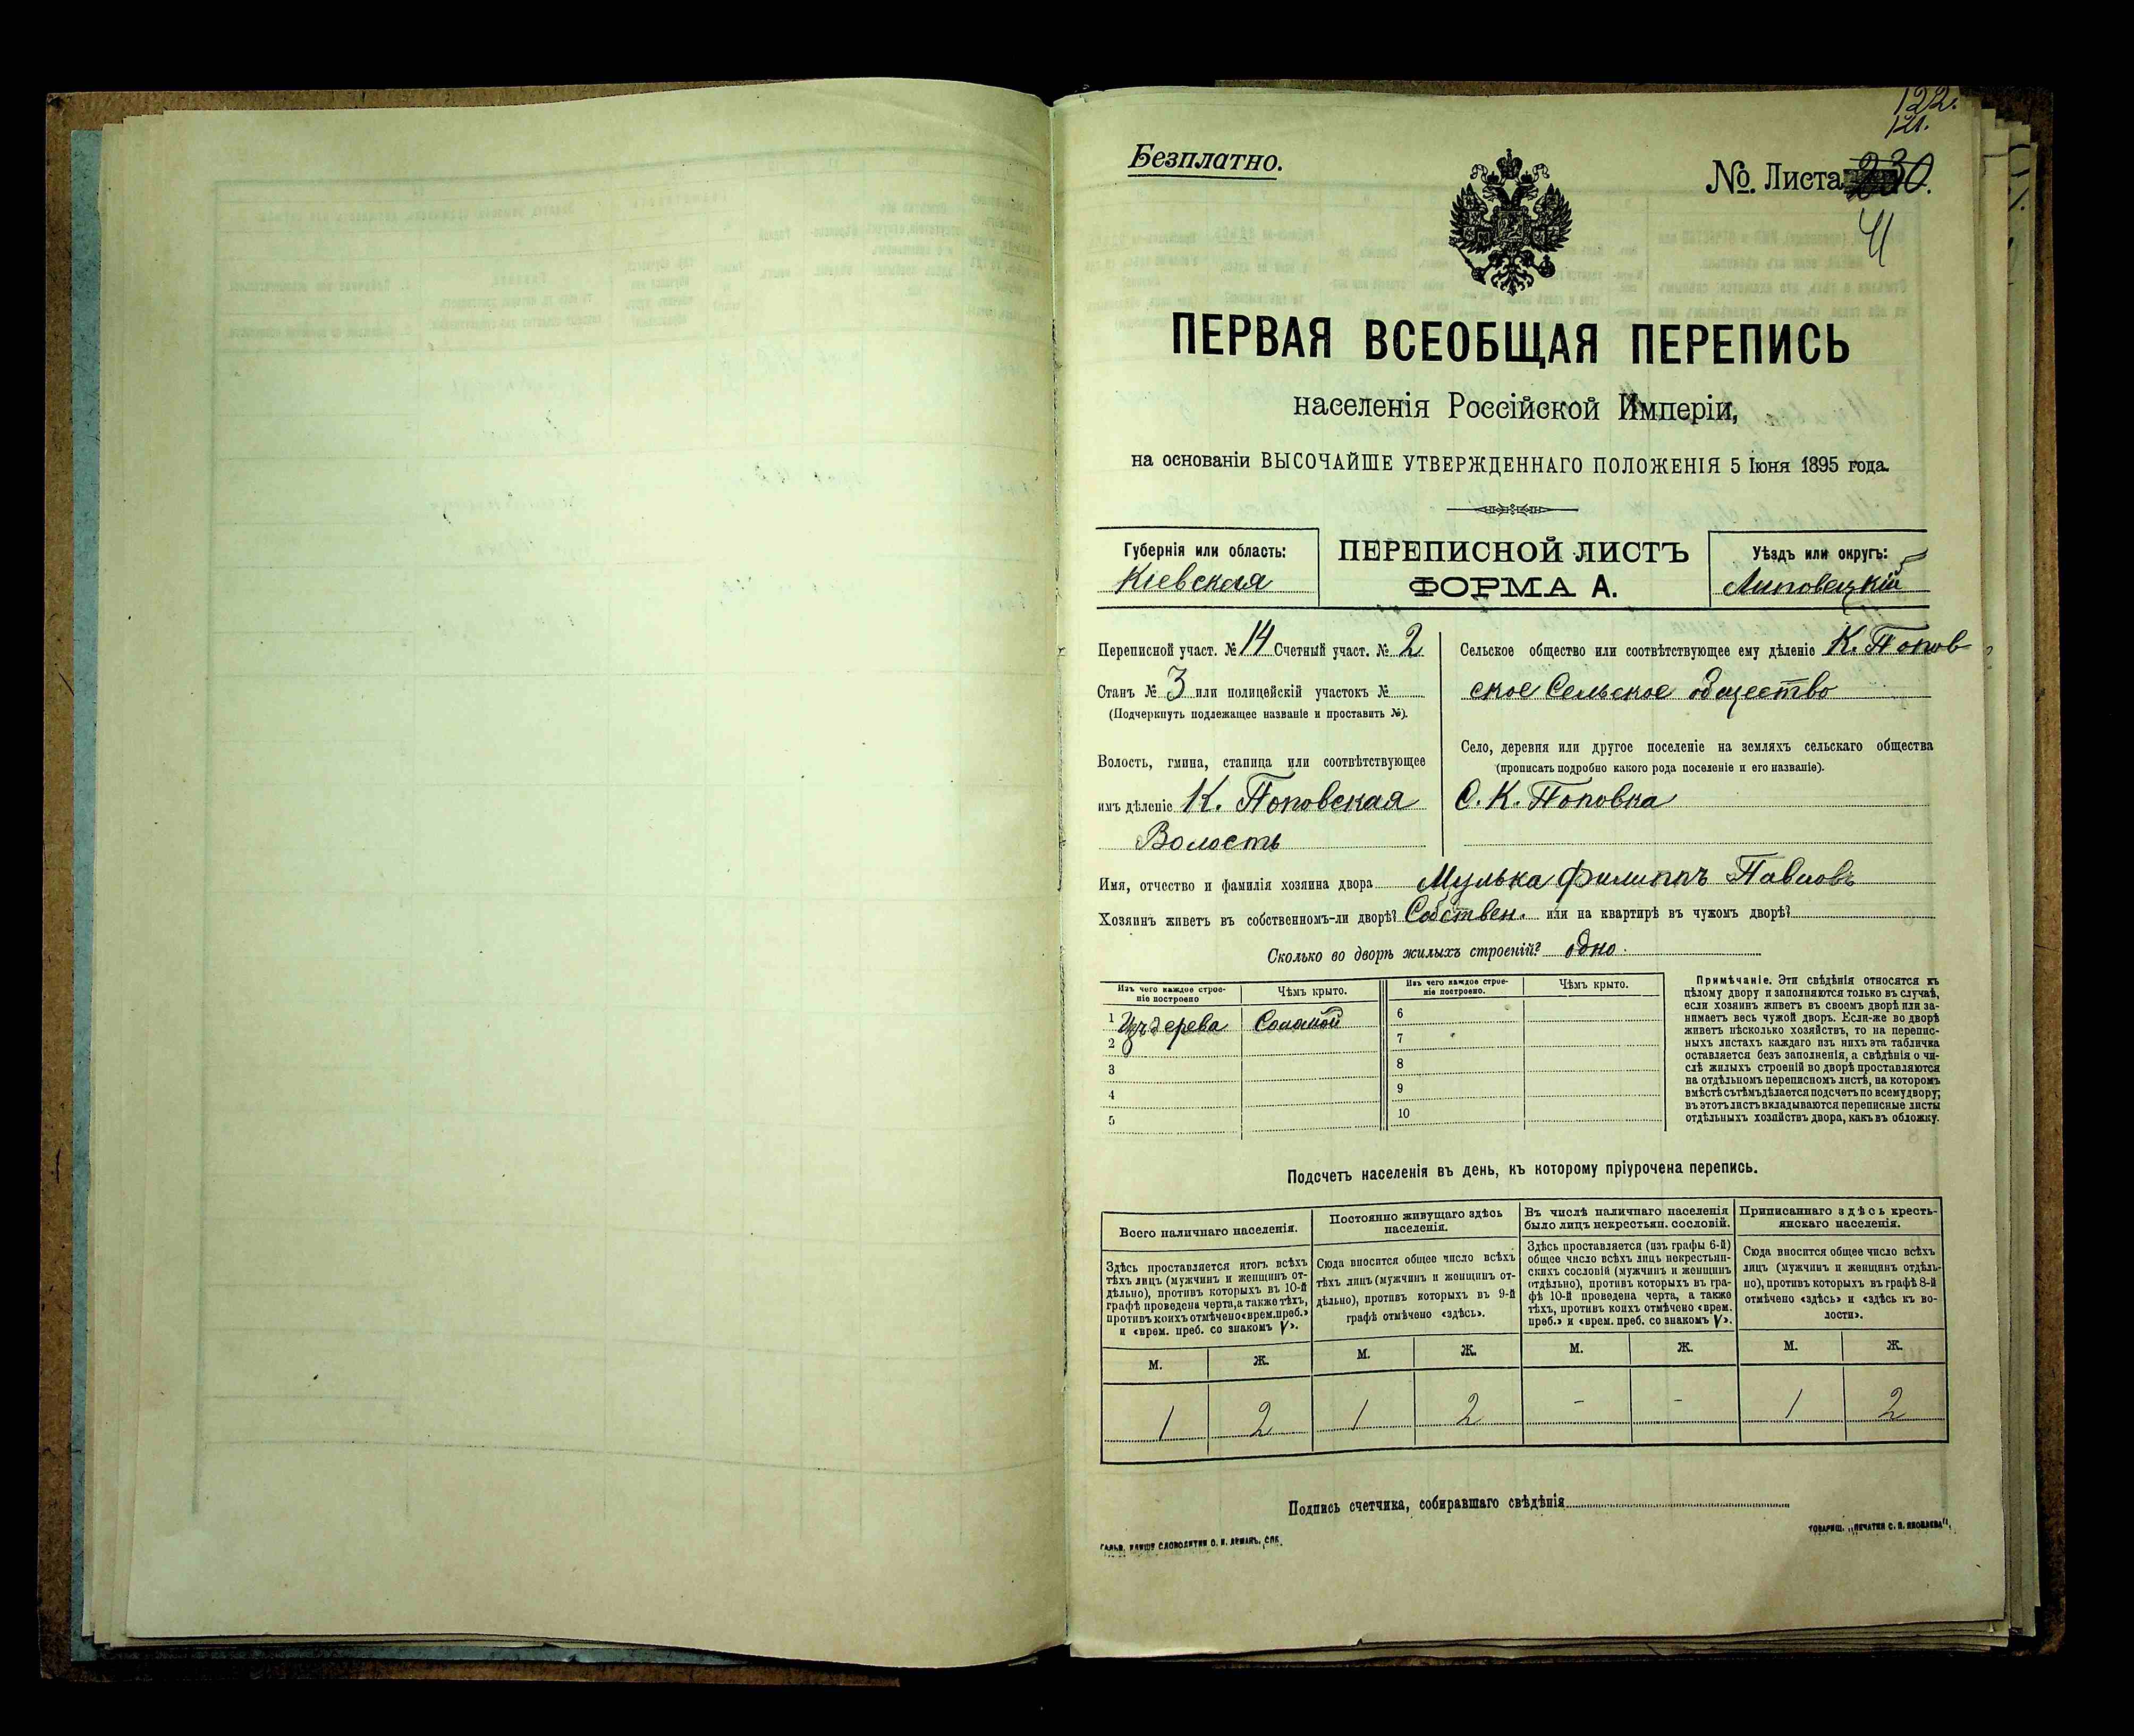 122.
121.
Безплатно.
№. Листа 230.
41
ПЕРВАЯ ВСЕОБЩАЯ ПЕРЕПИСЬ
населенія Россійской Имперіи,
на основаніи ВЫСОЧАЙШЕ УТВЕРЖДЕННАГО ПОЛОЖЕНІЯ 5 Іюня 1895 года.
Губернія или область:
Кіевская
ПЕРЕПИСНОЙ ЛИСТЪ
ФОРМА А.
Уѣздъ или округъ:
Липовецкій
Переписной участ. № 14 Счетный участ. № 2
Станъ № 3 или полицейскій участокъ №
(Подчеркнуть подлежащее названіе и проставить №).
Волость, гмина, станица или соотвѣтствующее
имъ дѣленіе К. Поповская
Волость
Сельское общество или соотвѣтствующее ему дѣленіе К. Попов-
ское Сельское общество
Село, деревня или другое поселеніе на земляхъ сельскаго общества
(прописать подробно какого рода поселеніе и его названіе).
С. К. Поповка
Имя, отчество и фамилія хозяина двора Мулька Филиппъ Павловъ
Хозяинъ живетъ въ собственномъ-ли дворѣ? Собствен. или на квартирѣ въ чужомъ дворѣ?
Сколько во дворѣ жилыхъ строеній? одно.
Изъ чего каждое строе-
ніе построено
Чѣмъ крыто.
Изъ чего каждое строе-
ніе построено.
Чѣмъ крыто.
1 Изъ дерева Соломой
2
3
4
5
6
7
8
9
10
Примѣчаніе. Эти свѣдѣнія относятся къ
цѣлому двору и заполняются только въ случаѣ,
если хозяинъ живетъ въ своемъ дворѣ или за-
нимаетъ весь чужой дворъ. Если-же во дворѣ
живетъ нѣсколько хозяйствъ, то на перепис-
ныхъ листахъ каждаго изъ нихъ эта табличка
оставляется безъ заполненія, а свѣдѣнія о чи-
слѣ жилыхъ строеній во дворѣ проставляются
на отдѣльномъ переписномъ листѣ, на которомъ
вмѣстѣ съ тѣмъ дѣлается подсчетъ по всему двору;
въ этотъ листъ вкладываются переписные листы
отдѣльныхъ хозяйствъ двора, какъ въ обложку.
Подсчетъ населенія въ день, къ которому пріурочена перепись.
Всего наличнаго населенія.
Здѣсь проставляется итогъ всѣхъ
тѣхъ лицъ (мужчинъ и женщинъ от-
дѣльно), противъ которыхъ въ 10-й
графѣ проведена черта, а также тѣхъ,
противъ коихъ отмѣчено «врем. преб.»
и «врем. преб. со знакомъ V».
Постоянно живущаго здѣсь
населенія.
Сюда вносится общее число всѣхъ
тѣхъ лицъ (мужчинъ и женщинъ от-
дѣльно), противъ которыхъ въ 9-й
графѣ отмѣчено «здѣсь».
Въ числѣ наличнаго населенія
было лицъ некрестьян. сословій.
Здѣсь проставляется (изъ графы 6-й)
общее число всѣхъ лицъ некрестьян-
скихъ сословій (мужчинъ и женщинъ
отдѣльно), противъ которыхъ въ гра-
фѣ 10-й проведена черта, а также
тѣхъ, противъ коихъ отмѣчено «врем.
преб.» и «врем. преб. со знакомъ V».
Приписаннаго здѣсь кресть-
янскаго населенія.
Сюда вносится общее число всѣхъ
лицъ (мужчинъ и женщинъ отдѣль-
но), противъ которыхъ въ графѣ 8-й
отмѣчено «здѣсь» и «здѣсь къ во-
лости».
М. Ж. М. Ж. М. Ж. М. Ж.
1 2 1 2 - - 1 2
Подпись счетчика, собиравшаго свѣдѣнія
ТОВАРИЩ. „ПЕЧАТНЯ С. П. ЯКОВЛЕВА",